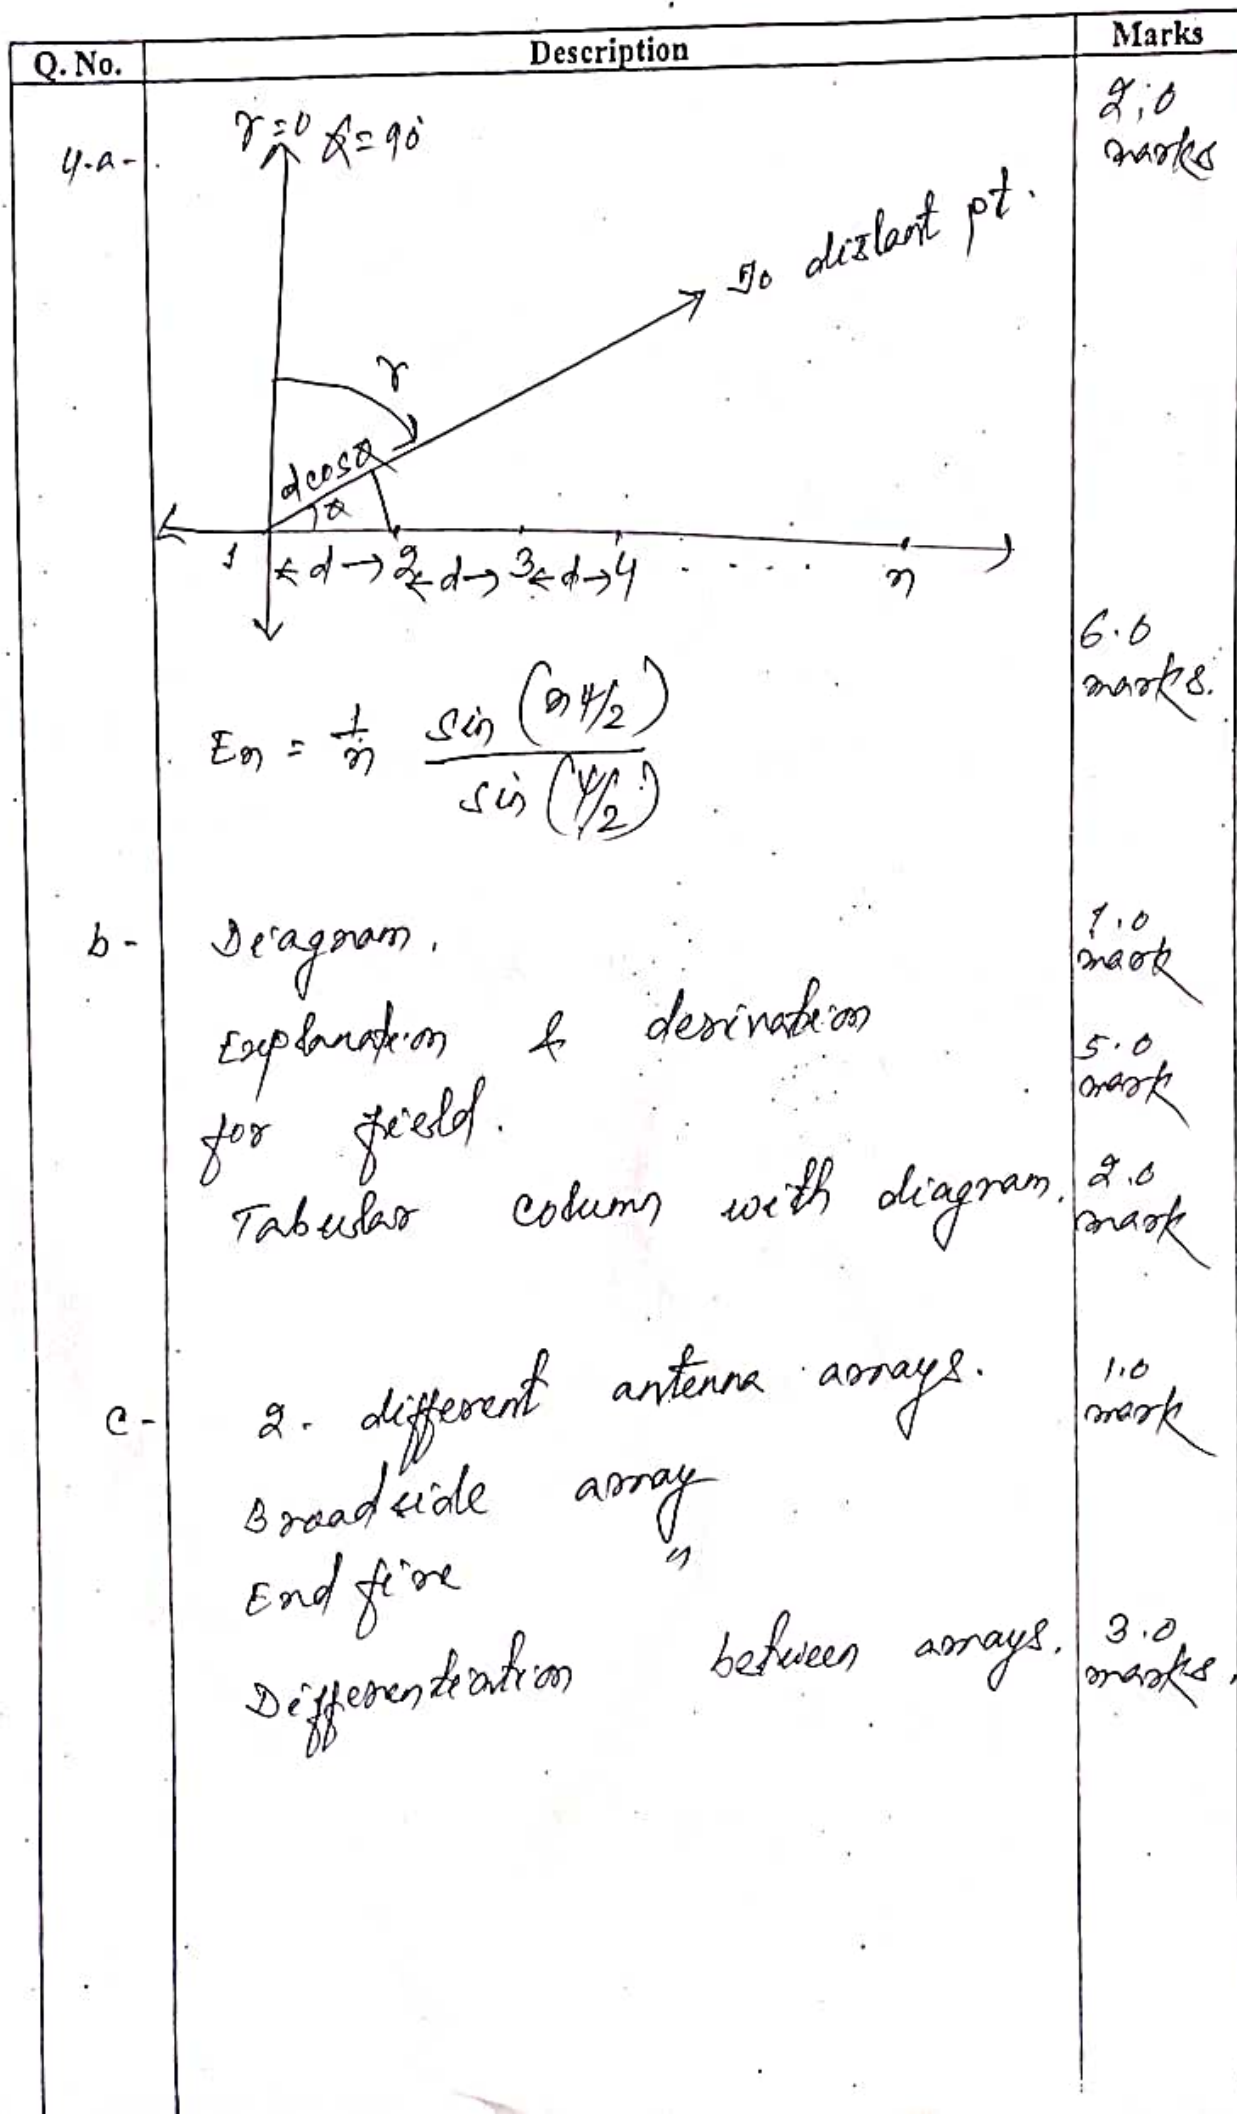 Q. No. Description Marks
4-a- γ=0 ϕ=90° 2.0
marks
To distant pt.
γ
d cosϕ
ϕ
1 ←d→ 2 ←d→ 3 ←d→ 4 . . . . . n
6.0
marks.
En = 1/n sin (nψ/2) / sin (ψ/2)
b- Diagram. 1.0
mark
Explanation & derivation 5.0
mark
for field.
Tabular column with diagram. 2.0
mark
c- 2- different antenna arrays. 1.0
mark
Broad side array
End fire "
Differentiation between arrays. 3.0
marks.